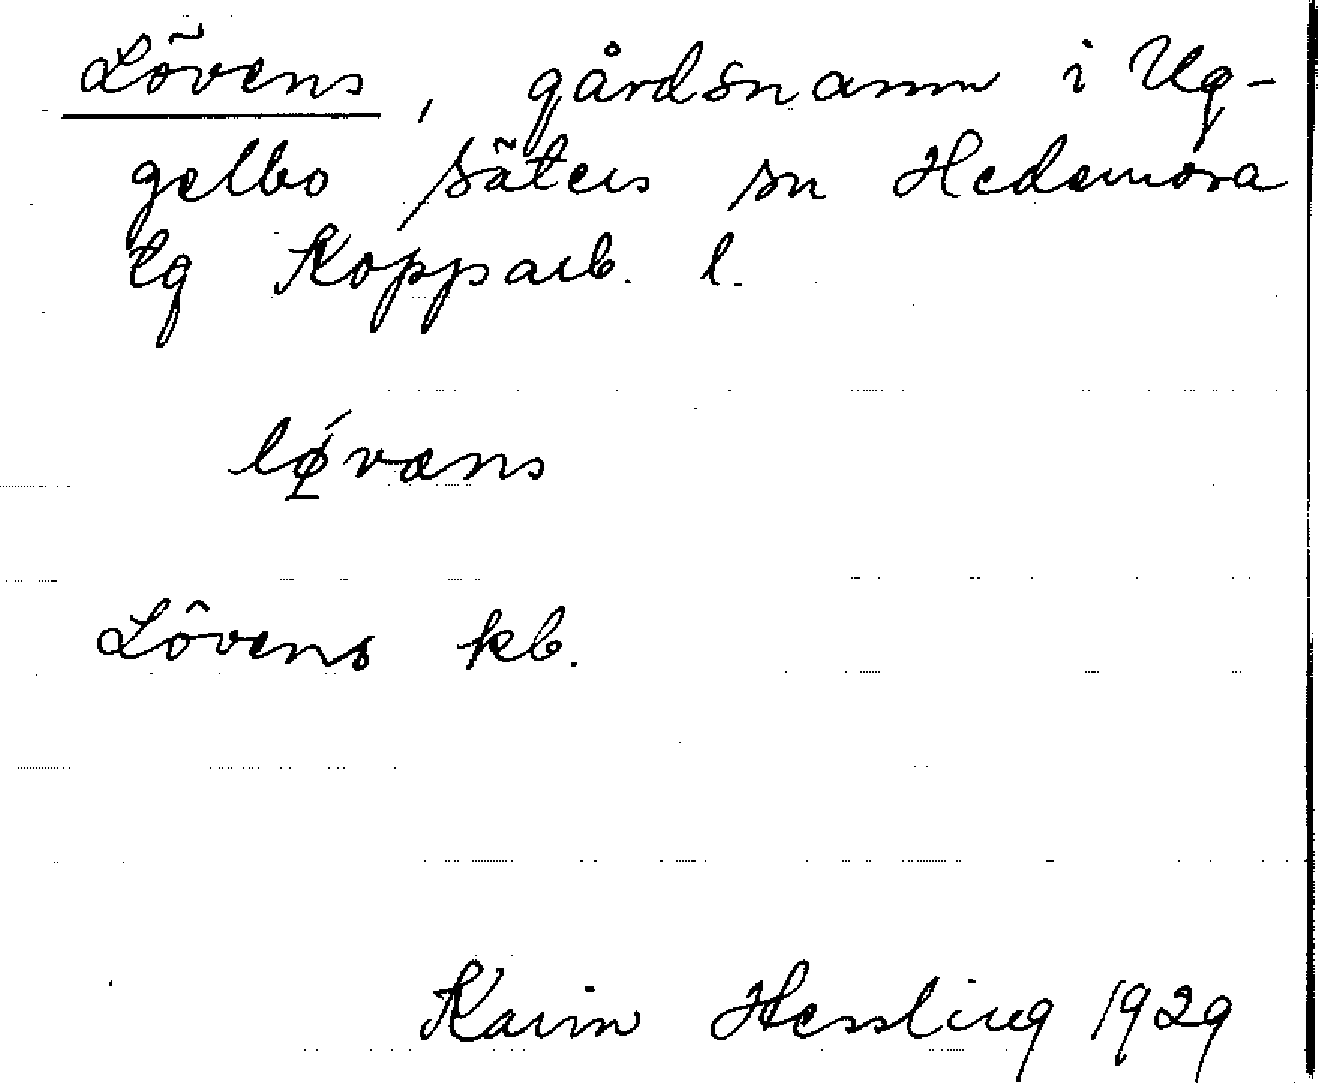 Lövens, gårdsnamn i Ug-
gelbo Säters sn Hedemora
lg Kopparb. l.
lǿvæns
Lövens kb.
Karin Hessling 1929